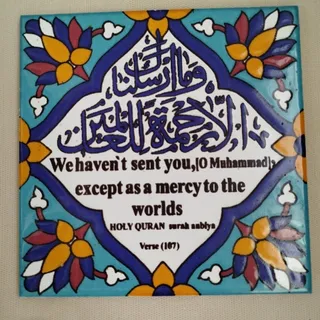 وما أرسلناك
إلا رحمة للعالمين
We haven't sent you,[O Muhammad],
except as a mercy to the
worlds
HOLY QURAN surah anbiya
Verse (107)